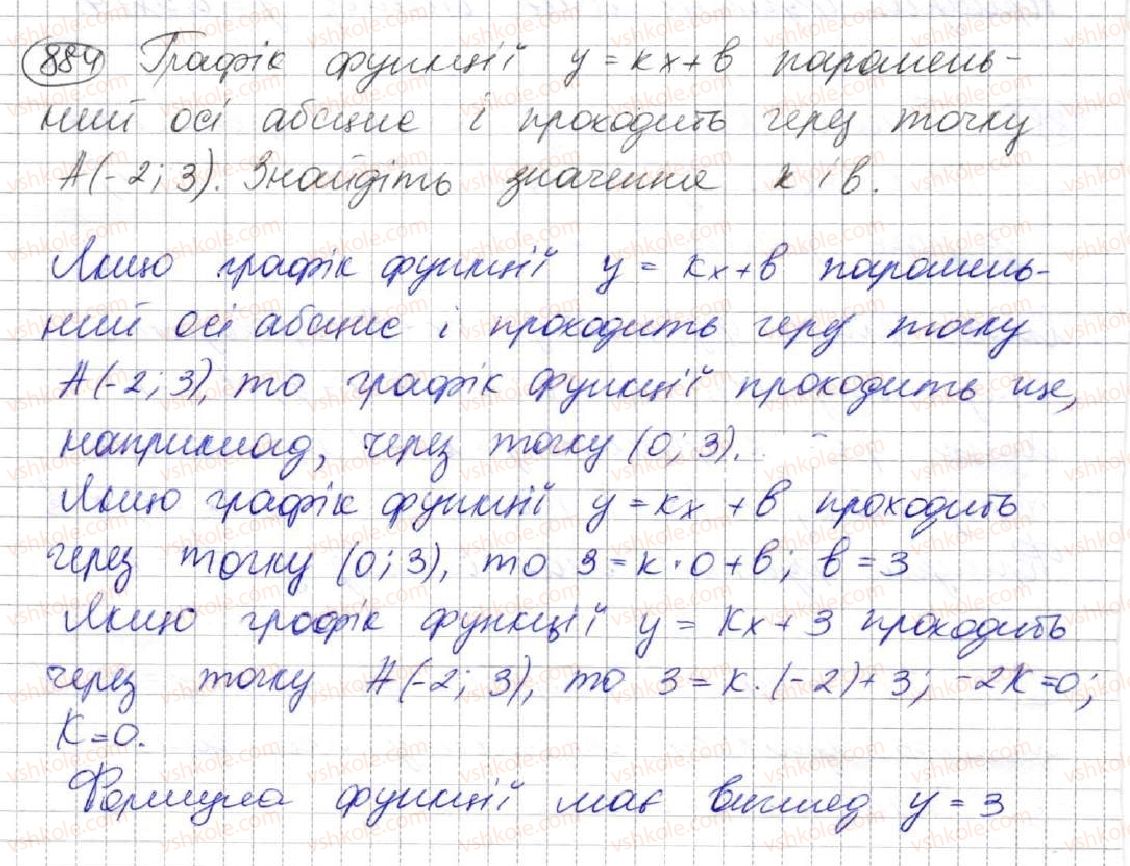 884 Графік функції y = kx + b паралель-
ний осі абсцис і проходить через точку
A(-2; 3). Знайдіть значення k i b.
Якщо графік функції y = kx + b паралель-
ний осі абсцис і проходить через точку
A(-2; 3), то графік функції проходить ще,
наприклад, через точку (0; 3).
Якщо графік функції y = kx + b проходить
через точку (0; 3), то 3 = k · 0 + b; b = 3
Якщо графік функції y = kx + 3 проходить
через точку A(-2; 3), то 3 = k · (-2) + 3; -2k = 0;
k = 0.
Формула функції має вигляд y = 3